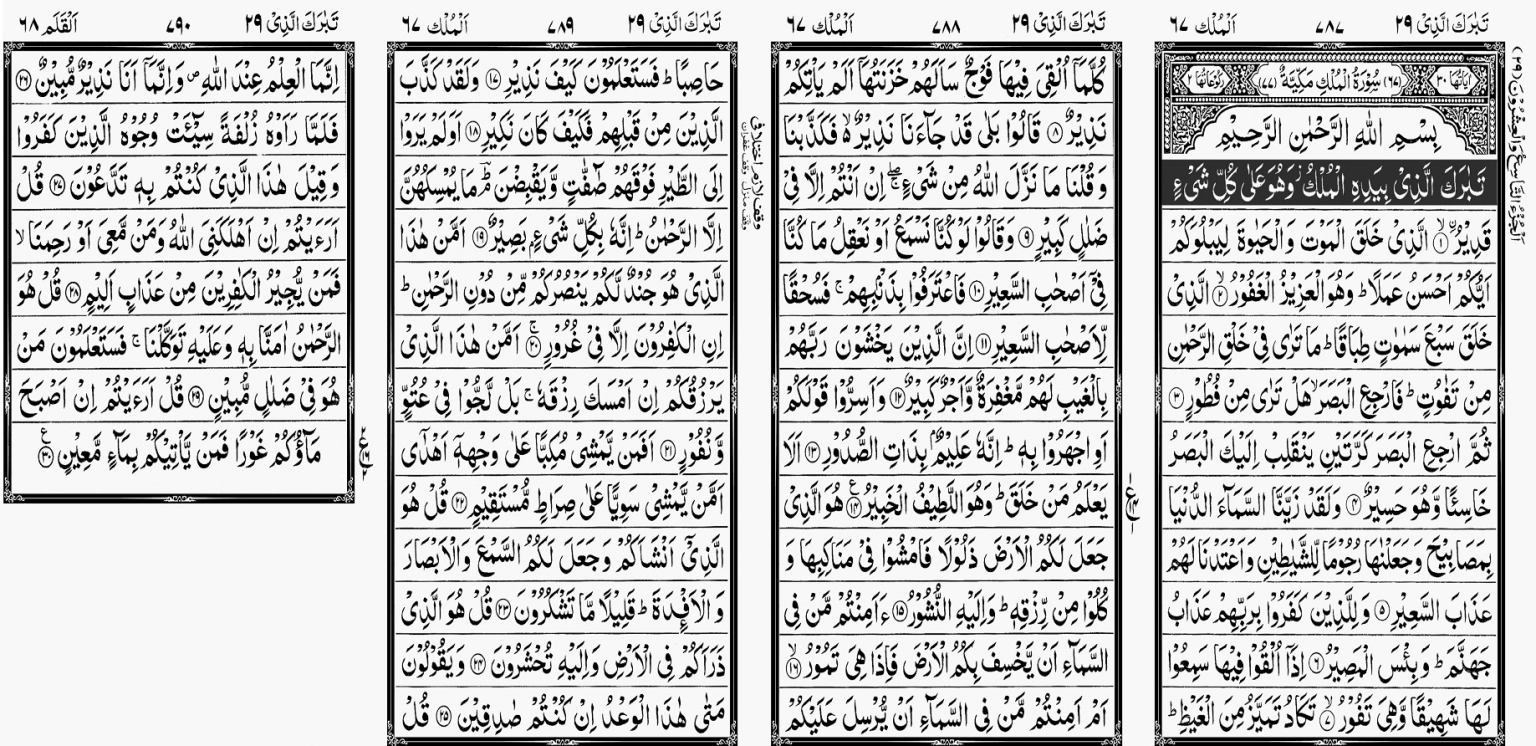 تَبٰرَكَ الَّذِىْ ٢٩ ٧٨٧ اَلْمُلْك ٦٧
اٰيَاتُهَا ٣٠ (٦٧) سُوْرَةُ الْمُلْكِ مَكِّيَّةٌ (٧٧) رُكُوْعَاتُهَا ٢
بِسْمِ اللّٰهِ الرَّحْمٰنِ الرَّحِيْمِ
تَبٰرَكَ الَّذِىْ بِيَدِهِ الْمُلْكُ ز وَهُوَ عَلٰى كُلِّ شَىْءٍ
قَدِيْرُ ۨ ۙ ﴿١﴾ الَّذِىْ خَلَقَ الْمَوْتَ وَالْحَيٰوةَ لِيَبْلُوَكُمْ
اَيُّكُمْ اَحْسَنُ عَمَلًا ؕ وَهُوَ الْعَزِيْزُ الْغَفُوْرُ ۙ ﴿٢﴾ الَّذِىْ
خَلَقَ سَبْعَ سَمٰوٰتٍ طِبَاقًا ؕ مَا تَرٰى فِىْ خَلْقِ الرَّحْمٰنِ
مِنْ تَفٰوُتٍ ؕ فَارْجِعِ الْبَصَرَ ۙ هَلْ تَرٰى مِنْ فُطُوْرٍ ﴿٣﴾
ثُمَّ ارْجِعِ الْبَصَرَ كَرَّتَيْنِ يَنْقَلِبْ اِلَيْكَ الْبَصَرُ
خَاسِئًا وَّهُوَ حَسِيْرٌ ﴿٤﴾ وَلَقَدْ زَيَّنَّا السَّمَآءَ الدُّنْيَا
بِمَصَابِيْحَ وَجَعَلْنٰهَا رُجُوْمًا لِّلشَّيٰطِيْنِ وَاَعْتَدْنَا لَهُمْ
عَذَابَ السَّعِيْرِ ﴿٥﴾ وَلِلَّذِيْنَ كَفَرُوْا بِرَبِّهِمْ عَذَابُ
جَهَنَّمَ ؕ وَبِئْسَ الْمَصِيْرُ ﴿٦﴾ اِذَآ اُلْقُوْا فِيْهَا سَمِعُوْا
لَهَا شَهِيْقًا وَّهِىَ تَفُوْرُ ۙ ﴿٧﴾ تَكَادُ تَمَيَّزُ مِنَ الْغَيْظِ ؕ
اَلْجُزْءُ التَّاسِعُ وَالْعِشْرُوْنَ (٢٩)
تَبٰرَكَ الَّذِىْ ٢٩ ٧٨٨ اَلْمُلْك ٦٧
كُلَّمَآ اُلْقِىَ فِيْهَا فَوْجٌ سَاَلَهُمْ خَزَنَتُهَآ اَلَمْ يَاْتِكُمْ
نَذِيْرٌ ﴿٨﴾ قَالُوْا بَلٰى قَدْ جَآءَنَا نَذِيْرٌ ۙ فَكَذَّبْنَا
وَقُلْنَا مَا نَزَّلَ اللّٰهُ مِنْ شَىْءٍ ۖۚ اِنْ اَنْتُمْ اِلَّا فِىْ
ضَلٰلٍ كَبِيْرٍ ﴿٩﴾ وَقَالُوْا لَوْ كُنَّا نَسْمَعُ اَوْ نَعْقِلُ مَا كُنَّا
فِىْٓ اَصْحٰبِ السَّعِيْرِ ﴿١٠﴾ فَاعْتَرَفُوْا بِذَنْۢبِهِمْ ۚ فَسُحْقًا
لِّاَصْحٰبِ السَّعِيْرِ ﴿١١﴾ اِنَّ الَّذِيْنَ يَخْشَوْنَ رَبَّهُمْ
بِالْغَيْبِ لَهُمْ مَّغْفِرَةٌ وَّاَجْرٌ كَبِيْرٌ ﴿١٢﴾ وَاَسِرُّوْا قَوْلَكُمْ
اَوِ اجْهَرُوْا بِهٖ ؕ اِنَّهٗ عَلِيْمٌۢ بِذَاتِ الصُّدُوْرِ ﴿١٣﴾ اَلَا
يَعْلَمُ مَنْ خَلَقَ ؕ وَهُوَ اللَّطِيْفُ الْخَبِيْرُ ﴿١٤﴾ هُوَ الَّذِىْ
جَعَلَ لَكُمُ الْاَرْضَ ذَلُوْلًا فَامْشُوْا فِىْ مَنَاكِبِهَا وَ
كُلُوْا مِنْ رِّزْقِهٖ ؕ وَاِلَيْهِ النُّشُوْرُ ﴿١٥﴾ ءَاَمِنْتُمْ مَّنْ فِى
السَّمَآءِ اَنْ يَّخْسِفَ بِكُمُ الْاَرْضَ فَاِذَا هِىَ تَمُوْرُ ۙ ﴿١٦﴾
اَمْ اَمِنْتُمْ مَّنْ فِى السَّمَآءِ اَنْ يُّرْسِلَ عَلَيْكُمْ
تَبٰرَكَ الَّذِىْ ٢٩ ٧٨٩ اَلْمُلْك ٦٧
حَاصِبًا ؕ فَسَتَعْلَمُوْنَ كَيْفَ نَذِيْرِ ﴿١٧﴾ وَلَقَدْ كَذَّبَ
الَّذِيْنَ مِنْ قَبْلِهِمْ فَكَيْفَ كَانَ نَكِيْرِ ﴿١٨﴾ اَوَلَمْ يَرَوْا
اِلَى الطَّيْرِ فَوْقَهُمْ صٰٓفّٰتٍ وَّيَقْبِضْنَ ؕ مَا يُمْسِكُهُنَّ
اِلَّا الرَّحْمٰنُ ؕ اِنَّهٗ بِكُلِّ شَىْءٍۢ بَصِيْرٌ ﴿١٩﴾ اَمَّنْ هٰذَا
الَّذِىْ هُوَ جُنْدٌ لَّكُمْ يَنْصُرُكُمْ مِّنْ دُوْنِ الرَّحْمٰنِ ؕ
اِنِ الْكٰفِرُوْنَ اِلَّا فِىْ غُرُوْرٍ ۚ ﴿٢٠﴾ اَمَّنْ هٰذَا الَّذِىْ
يَرْزُقُكُمْ اِنْ اَمْسَكَ رِزْقَهٗ ۚ بَلْ لَّجُّوْا فِىْ عُتُوٍّ
وَّنُفُوْرٍ ﴿٢١﴾ اَفَمَنْ يَّمْشِىْ مُكِبًّا عَلٰى وَجْهِهٖٓ اَهْدٰٓى
اَمَّنْ يَّمْشِىْ سَوِيًّا عَلٰى صِرَاطٍ مُّسْتَقِيْمٍ ﴿٢٢﴾ قُلْ هُوَ
الَّذِىْٓ اَنْشَاَكُمْ وَجَعَلَ لَكُمُ السَّمْعَ وَالْاَبْصَارَ
وَالْاَفْـِٕدَةَ ؕ قَلِيْلًا مَّا تَشْكُرُوْنَ ﴿٢٣﴾ قُلْ هُوَ الَّذِىْ
ذَرَاَكُمْ فِى الْاَرْضِ وَاِلَيْهِ تُحْشَرُوْنَ ﴿٢٤﴾ وَيَقُوْلُوْنَ
مَتٰى هٰذَا الْوَعْدُ اِنْ كُنْتُمْ صٰدِقِيْنَ ﴿٢٥﴾ قُلْ
تَبٰرَكَ الَّذِىْ ٢٩ ٧٩٠ اَلْقَلَم ٦٨
اِنَّمَا الْعِلْمُ عِنْدَ اللّٰهِ ۪ وَاِنَّمَآ اَنَا نَذِيْرٌ مُّبِيْنٌ ﴿٢٦﴾
فَلَمَّا رَاَوْهُ زُلْفَةً سِيْٓـَٔتْ وُجُوْهُ الَّذِيْنَ كَفَرُوْا
وَقِيْلَ هٰذَا الَّذِىْ كُنْتُمْ بِهٖ تَدَّعُوْنَ ﴿٢٧﴾ قُلْ
اَرَءَيْتُمْ اِنْ اَهْلَكَنِىَ اللّٰهُ وَمَنْ مَّعِىَ اَوْ رَحِمَنَا ۙ
فَمَنْ يُّجِيْرُ الْكٰفِرِيْنَ مِنْ عَذَابٍ اَلِيْمٍ ﴿٢٨﴾ قُلْ هُوَ
الرَّحْمٰنُ اٰمَنَّا بِهٖ وَعَلَيْهِ تَوَكَّلْنَا ۚ فَسَتَعْلَمُوْنَ مَنْ
هُوَ فِىْ ضَلٰلٍ مُّبِيْنٍ ﴿٢٩﴾ قُلْ اَرَءَيْتُمْ اِنْ اَصْبَحَ
مَآؤُكُمْ غَوْرًا فَمَنْ يَّاْتِيْكُمْ بِمَآءٍ مَّعِيْنٍ ﴿٣٠﴾